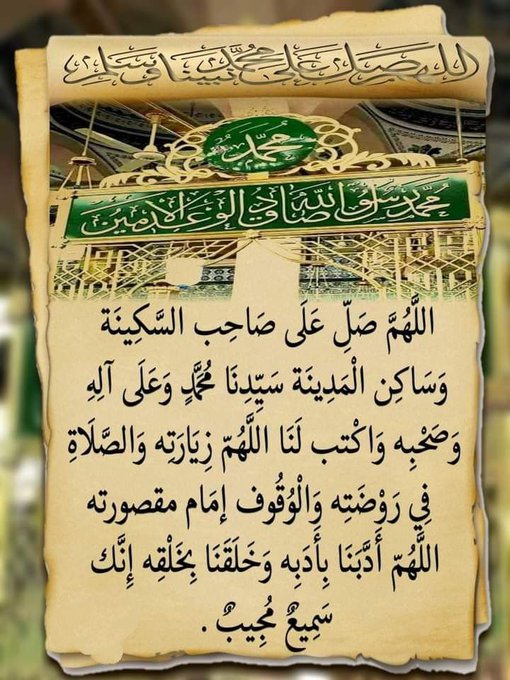 اللهم صل على محمد نبينا وسلم
محمد
محمد رسول الله صادق الوعد الامين
اللَّهُمَّ صَلِّ عَلَى صَاحِب السَّكِينَة
وَسَاكِن الْمَدِينَة سَيِّدِنَا مُحَمَّدٍ وَعَلَى آلِهِ
وَصَحْبِه وَاكْتب لَنَا اللَّهُمّ زِيَارَتِه وَالصَّلَاةِ
فِي رَوْضَتِه وَالْوُقُوف إمَام مقصورته
اللَّهُمّ أَدَّبَنَا بِأَدَبِه وَخَلَقَنَا بِخَلْقِه إنَّك
سَمِيعٌ مُجِيبٌ .